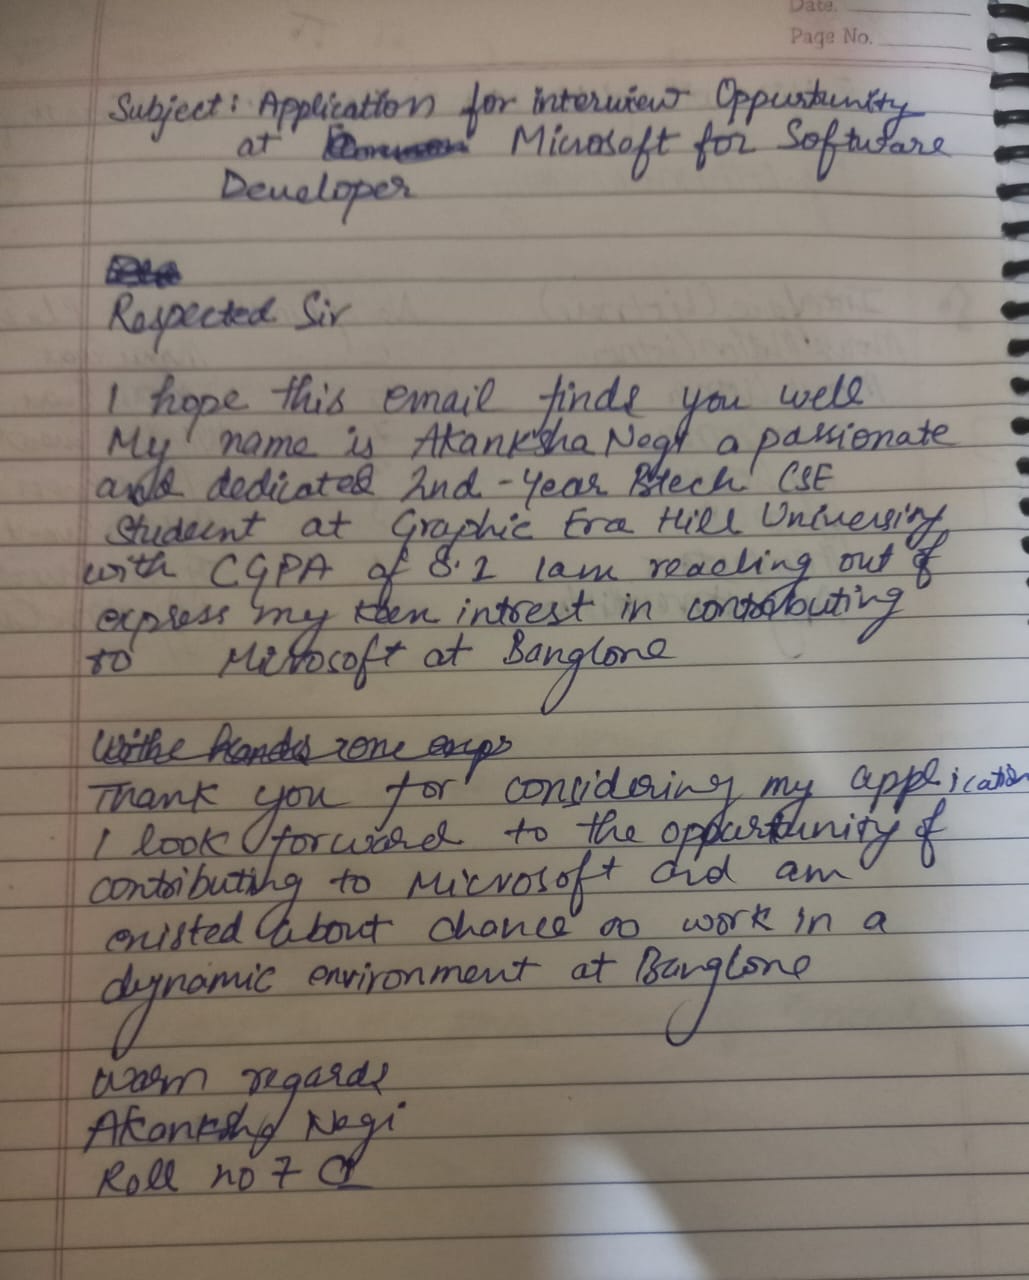 Date.
Page No.
Subject: Application for interview Oppurtunity
at Microsoft for Software
Developer
Respected Sir
I hope this email finds you well
My name is Akanksha Negi a passionate
and dedicated 2nd-year Btech CSE
Student at Graphic Era Hill University
with CGPA of 8.2 I am reaching out of
express my keen intrest in contributing
to Microsoft at Banglone
Thank you for considering my application
I look forward to the oppurtunity of
contributing to Microsoft and am
about chance to work in a
dynamic environment at Banglone
Warm regards
Akanksha Negi
Roll no 7